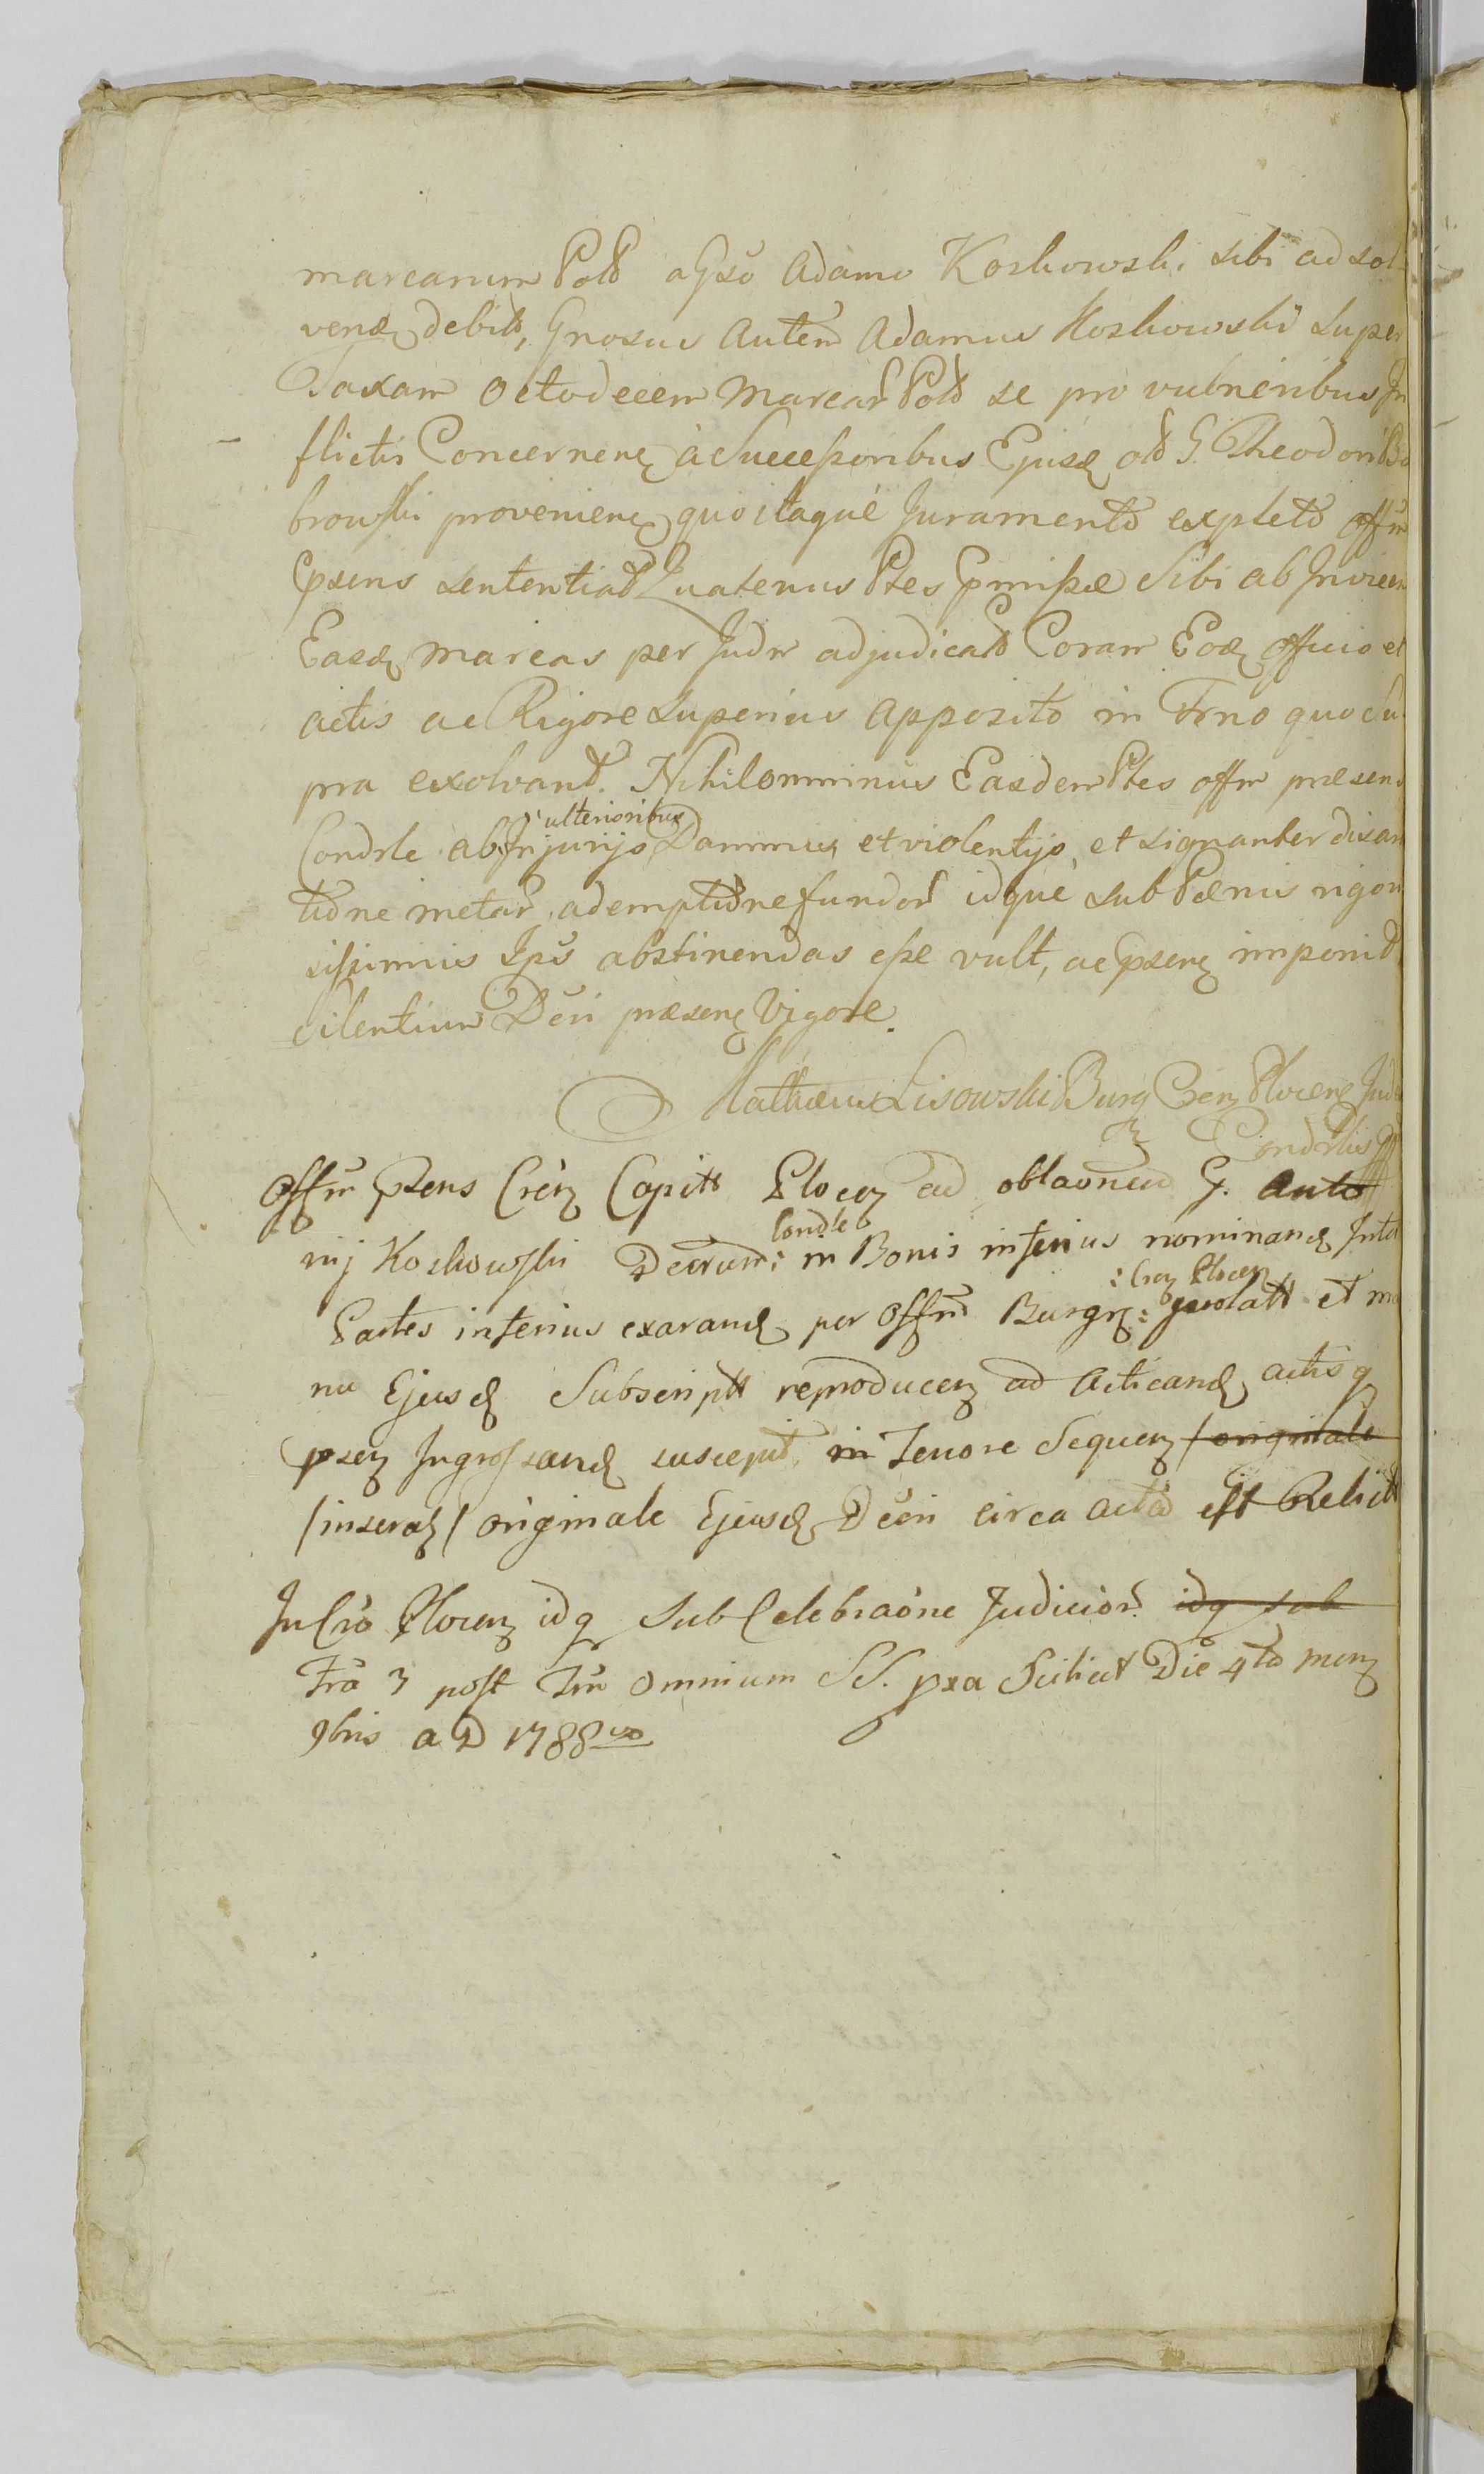 marcarum Pold a Gso Adamo Koskowski sibi ad sol-
venđ debitt, Gnosus Autem Adamus Koskowski super
Taxam Octodecem Marcar Pold se pro vulneribus In
flictis Concernenę à Successoribus Ejusđ old G. Theodori Bo
browski provenienę quo itaquè Juramento expleto Offm
Ppsens sententiad Quatenus Ptes Ppmissæ Sibi ab Invicem
Easđ marcas per Judm adjudicatt Coram Eođ Officio et
actis ac Rigore superius apposito in Trno quo su
pra exolvant. Nihilomminus Easdem Ptes offm præsens
Condrle ab Injurijs ulterioribus Damnis et violentijs, et signanter disar
tione metar, ademptione fundor idquè sub Pænis rigor
issimis Ips abstinendas esse vult, ac Ppsenę imponit
silentium Dcri præsenę Vigore.
Mathæus Lisowski Burg Cren Plocenę Jud
Condrlis
Offm Ppsens Cren Capitt Plocen ad oblaonem G. Anto
nij Koskowski Decretum: Condle in Bonis inferius nominanđ Inter
Partes inferius exaranđ per Offm Burgę: :Cren Plocen prolatt et ma
nu Ejusđ Subscriptt reproducen ad Acticanđ actisq
psen Ingrossanđ suscepit, in Tenore Sequen /originale
/inseratę/ originale Ejusđ Dcri circa acta est Relictt
In Cro Plocen idq sub Celebraone Judicior idq sub
Fra 3 post Fm Omnium SS. pxa Scilicet Die 4ta men
9bris a D 1788vo